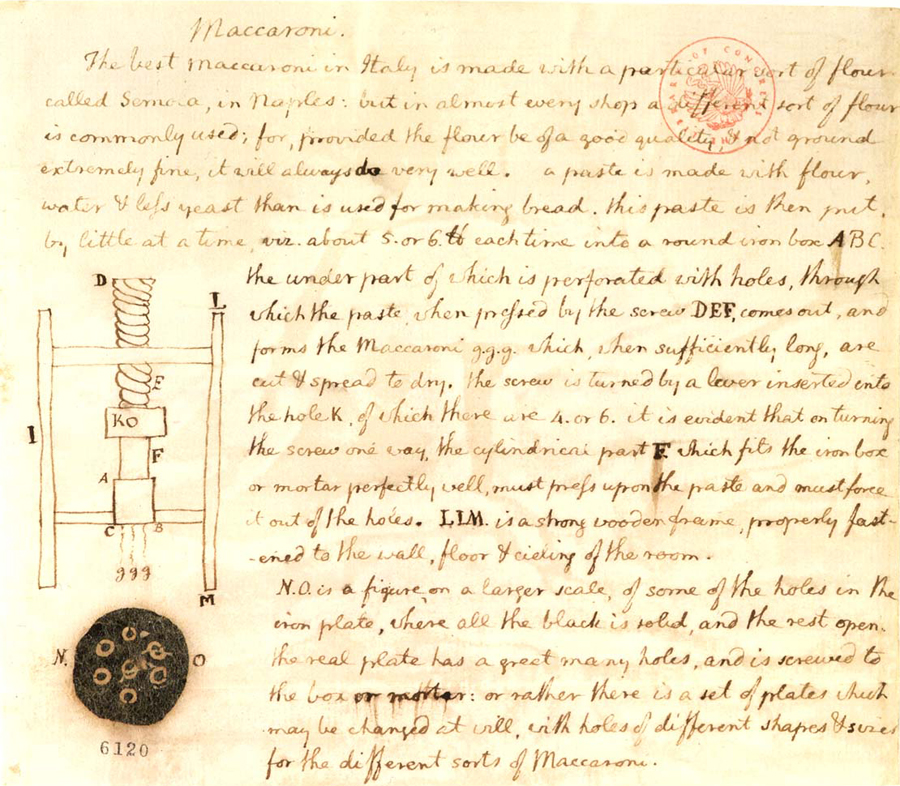 Maccaroni.
The best maccaroni in Italy is made with a particular sort of flour
called Semola, in Naples: but in almost every shop a different sort of flour
is commonly used; for, provided the flour be of a good quality, & not ground
extremely fine, it will always do very well. a paste is made with flour,
water & less yeast than is used for making bread. this paste is then put,
by little at a time, viz. about 5. or 6. ℔ each time into a round iron box ABC.
the under part of which is perforated with holes, through
which the paste, when pressed by the screw DEF, comes out, and
forms the Maccaroni g.g.g. which, when sufficiently long, are
cut & spread to dry. the screw is turned by a lever inserted into
the hole K, of which there are 4. or 6. it is evident that on turning
the screw one way, the cylindrical part F. which fits the iron box
or mortar perfectly well, must press upon the paste and must force
it out of the holes. LLM. is a strong wooden frame, properly fast-
-ened to the wall, floor & cieling of the room.
N.O. is a figure, on a larger scale, of some of the holes in the
iron plate, where all the black is solid, and the rest open.
the real plate has a great many holes, and is screwed to
the box or mortar: or rather there is a set of plates which
may be changed at will, with holes of different shapes & sizes
for the different sorts of Maccaroni.
D
L
E
K
I
F
A
C
B
g g g
M
N.
O
6120